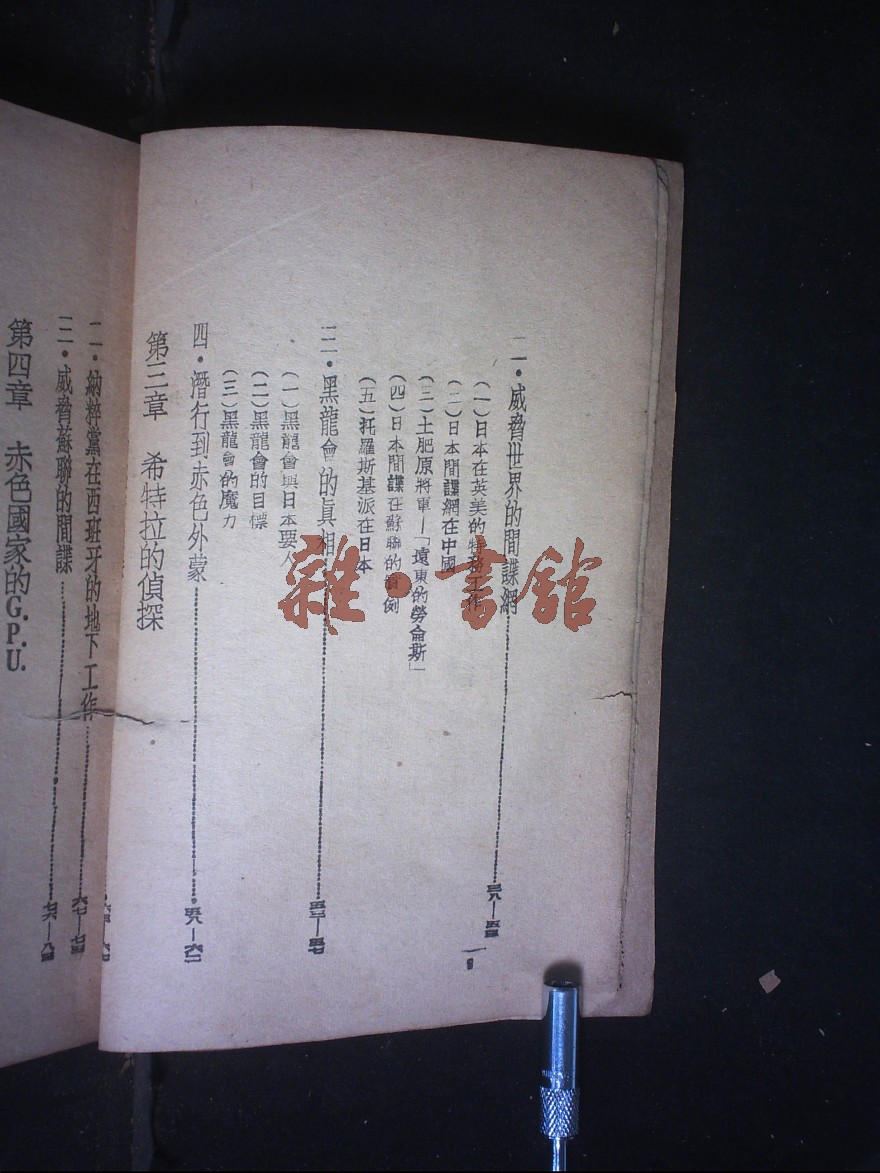 二·威脅世界的間諜網……三八—五三
(一)日本在英美的特務工作
(二)日本間諜網在中國
(三)土肥原將軍—「遠東的勞倫斯」
(四)日本間諜在蘇聯的實例
(五)托羅斯基派在日本
三·黑龍會的眞相……五三—五七
(一)黑龍會與日本要人
(二)黑龍會的目標
(三)黑龍會的魔力
四·潛行到赤色外蒙……五八—六二
第三章 希特拉的偵探
二·納粹黨在西班牙的地下工作……六七—七四
三·威脅蘇聯的間諜……七六—八四
第四章 赤色國家的G.P.U.
雜·書館